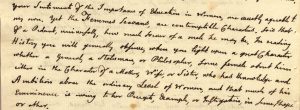 your Sentiment of the Importance of Education in Women, are exactly agreable to
my own. Yet the Femmes Scavans, are contemptible Characters. So is that
of a Pedant, universally, how much soever of a male he may be. In reading
History you will generally observe, when you light upon a great Character
whether a General, a Statesman, or Philosopher, some female about him
either in the Character of a Mother, Wife, or Sister, who has Knowledge and
Ambition above the ordinary Level of Women, and that much of his
Eminence is owing to her Precepts, Example, or Instigation, in some shape
or other.